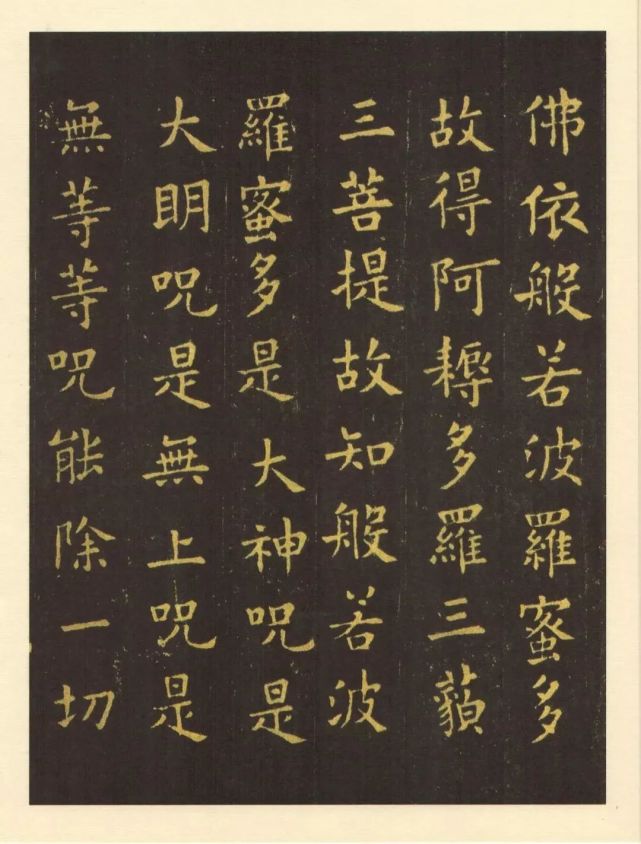 佛依般若波羅蜜多
故得阿耨多羅三藐
三菩提故知般若波
羅蜜多是大神咒是
大明咒是無上咒是
無等等咒能除一切